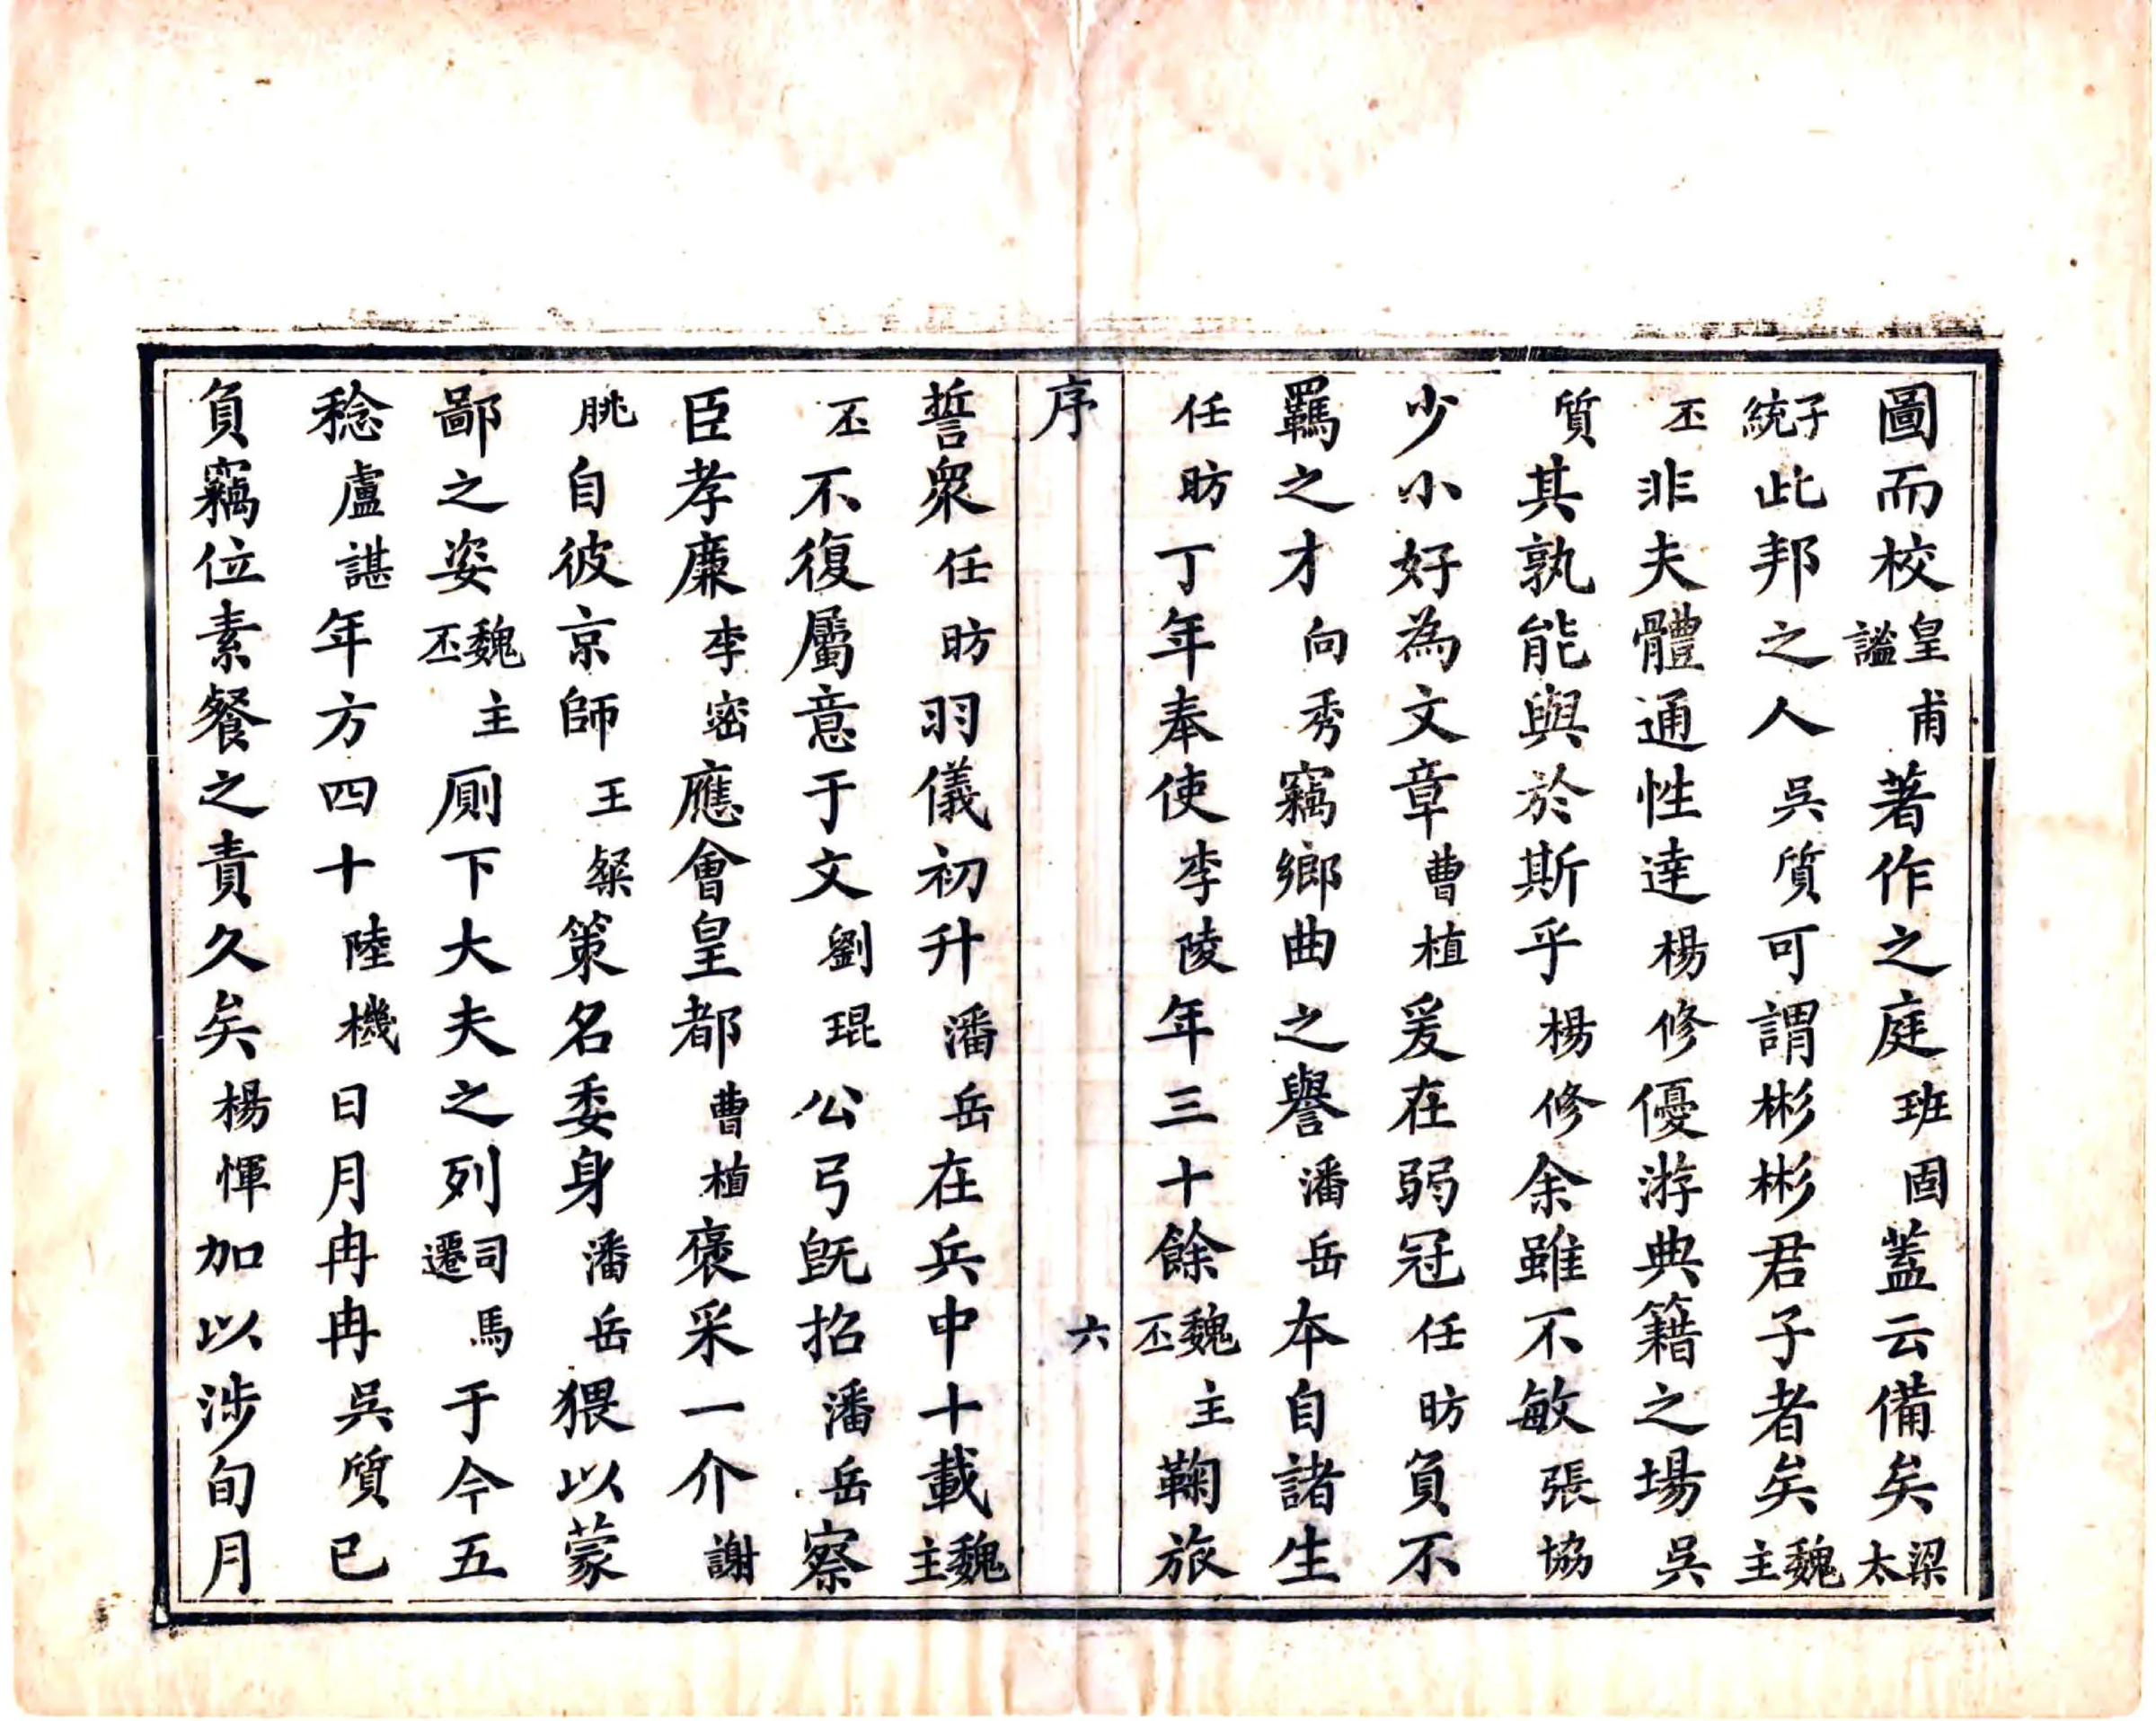 圖而校皇甫謐著作之庭班固蓋云備矣梁太
子統此邦之人吳質可謂彬彬君子者矣魏主
丕非夫體通性達楊修優游典籍之場吳
質其孰能與於斯乎楊修余雖不敏張協
少小好為文章曹植爰在弱冠任昉負不
羈之才向秀竊鄉曲之譽潘岳本自諸生
任昉丁年奉使李陵年三十餘魏主丕鞠旅
序 六
誓眾任昉羽儀初升潘岳在兵中十載魏主
丕不復屬意于文劉琨公弓既招潘岳察
臣孝廉李密應會皇都曹植褒采一介謝
朓自彼京師王粲策名委身潘岳猥以蒙
鄙之姿魏主丕廁下大夫之列司馬遷于今五
稔盧諶年方四十陸機日月冉冉吳質已
負竊位素餐之責久矣楊惲加以涉旬月